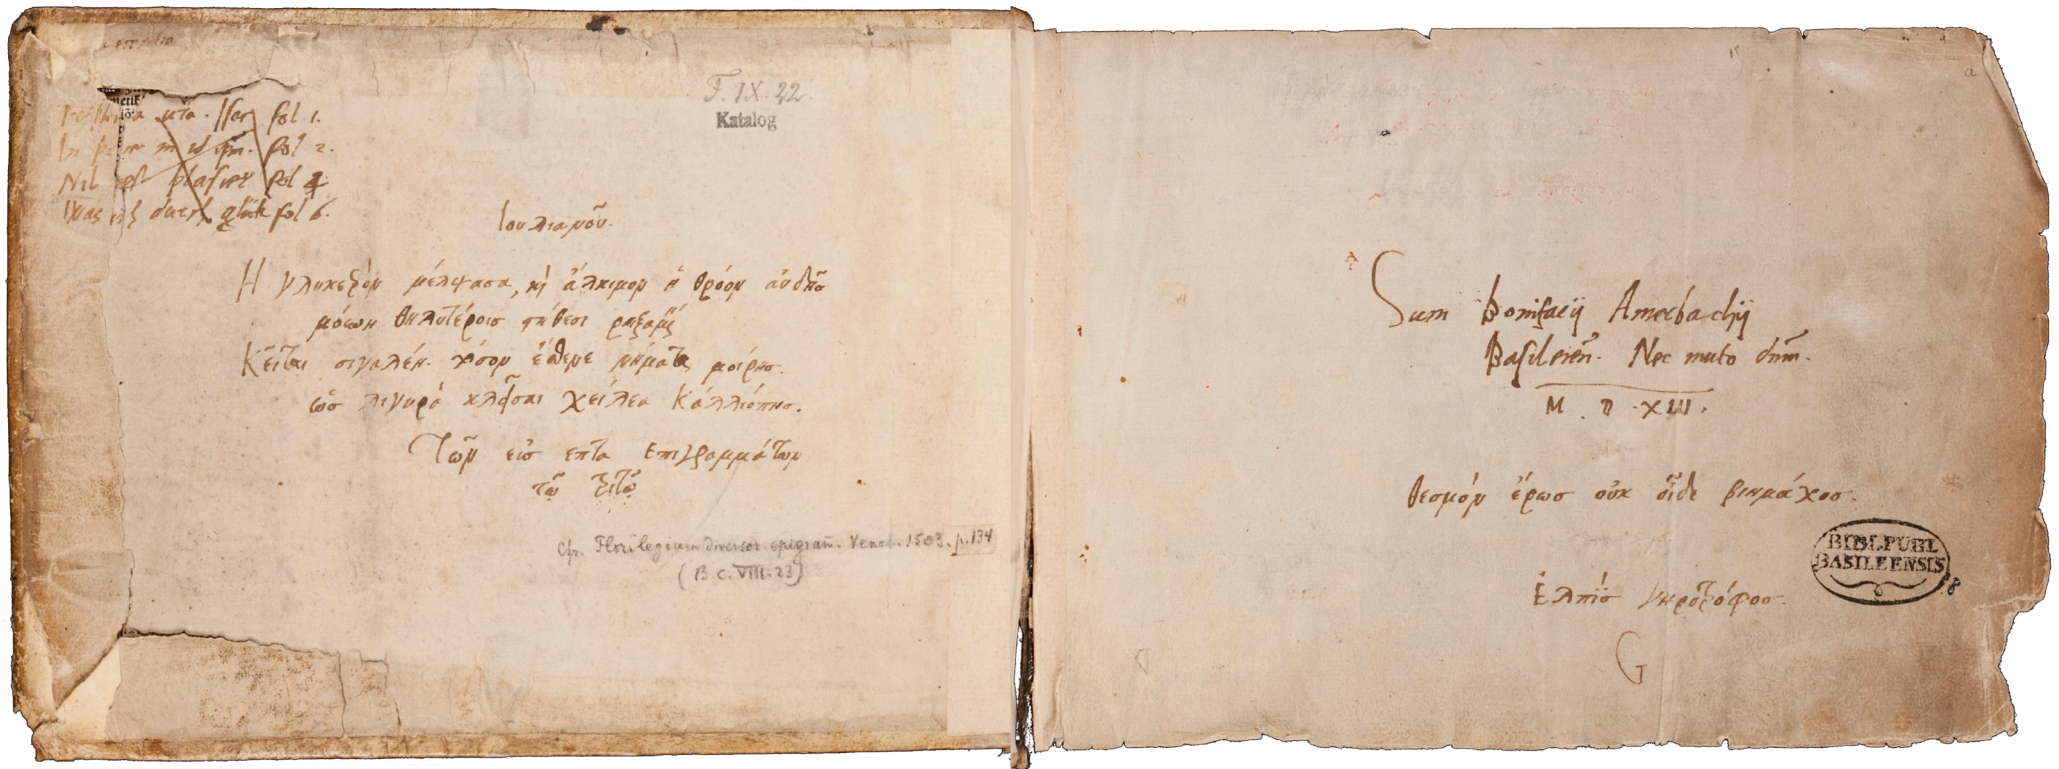 fol 1.
fol 2.
Nil plasirt fol 4
Was ich durch glük fol 6.
F. IX. 22.
Katalog
Ιουλιανοῦ.
Η γλυκερὸν μέλψασα, κỳ ἄλκιμον ἡ θρόον αὐδῆσ
μόυνη θηλυτέροισ στήθεσι ῥηξαμένη
Κεῖται σιγαλέη. τόσον ἔσθενε νήματα μοίρησ.
ὡσ λιγυρὰ κλεῖσαι χείλεα Καλλιόπησ.
Τῶν εἰσ επτα επιγραμμάτων
τῷ τρίτῳ
Cfr. Florilegium diversor epigram̄. Venet. 1503. p. 134
(B c. VIII. 23)
a
A
Sum Bonifacij Amerbachij
Basileien̄. Nec muto dnm̄.
M . D . XIII.
θεσμὸν ἔρωσ οὐκ οἶδε βιημάχοσ.
Ἐλπὶσ γηροτρόφοσ.
G
BIBL. PUBL
BASILEENSIS